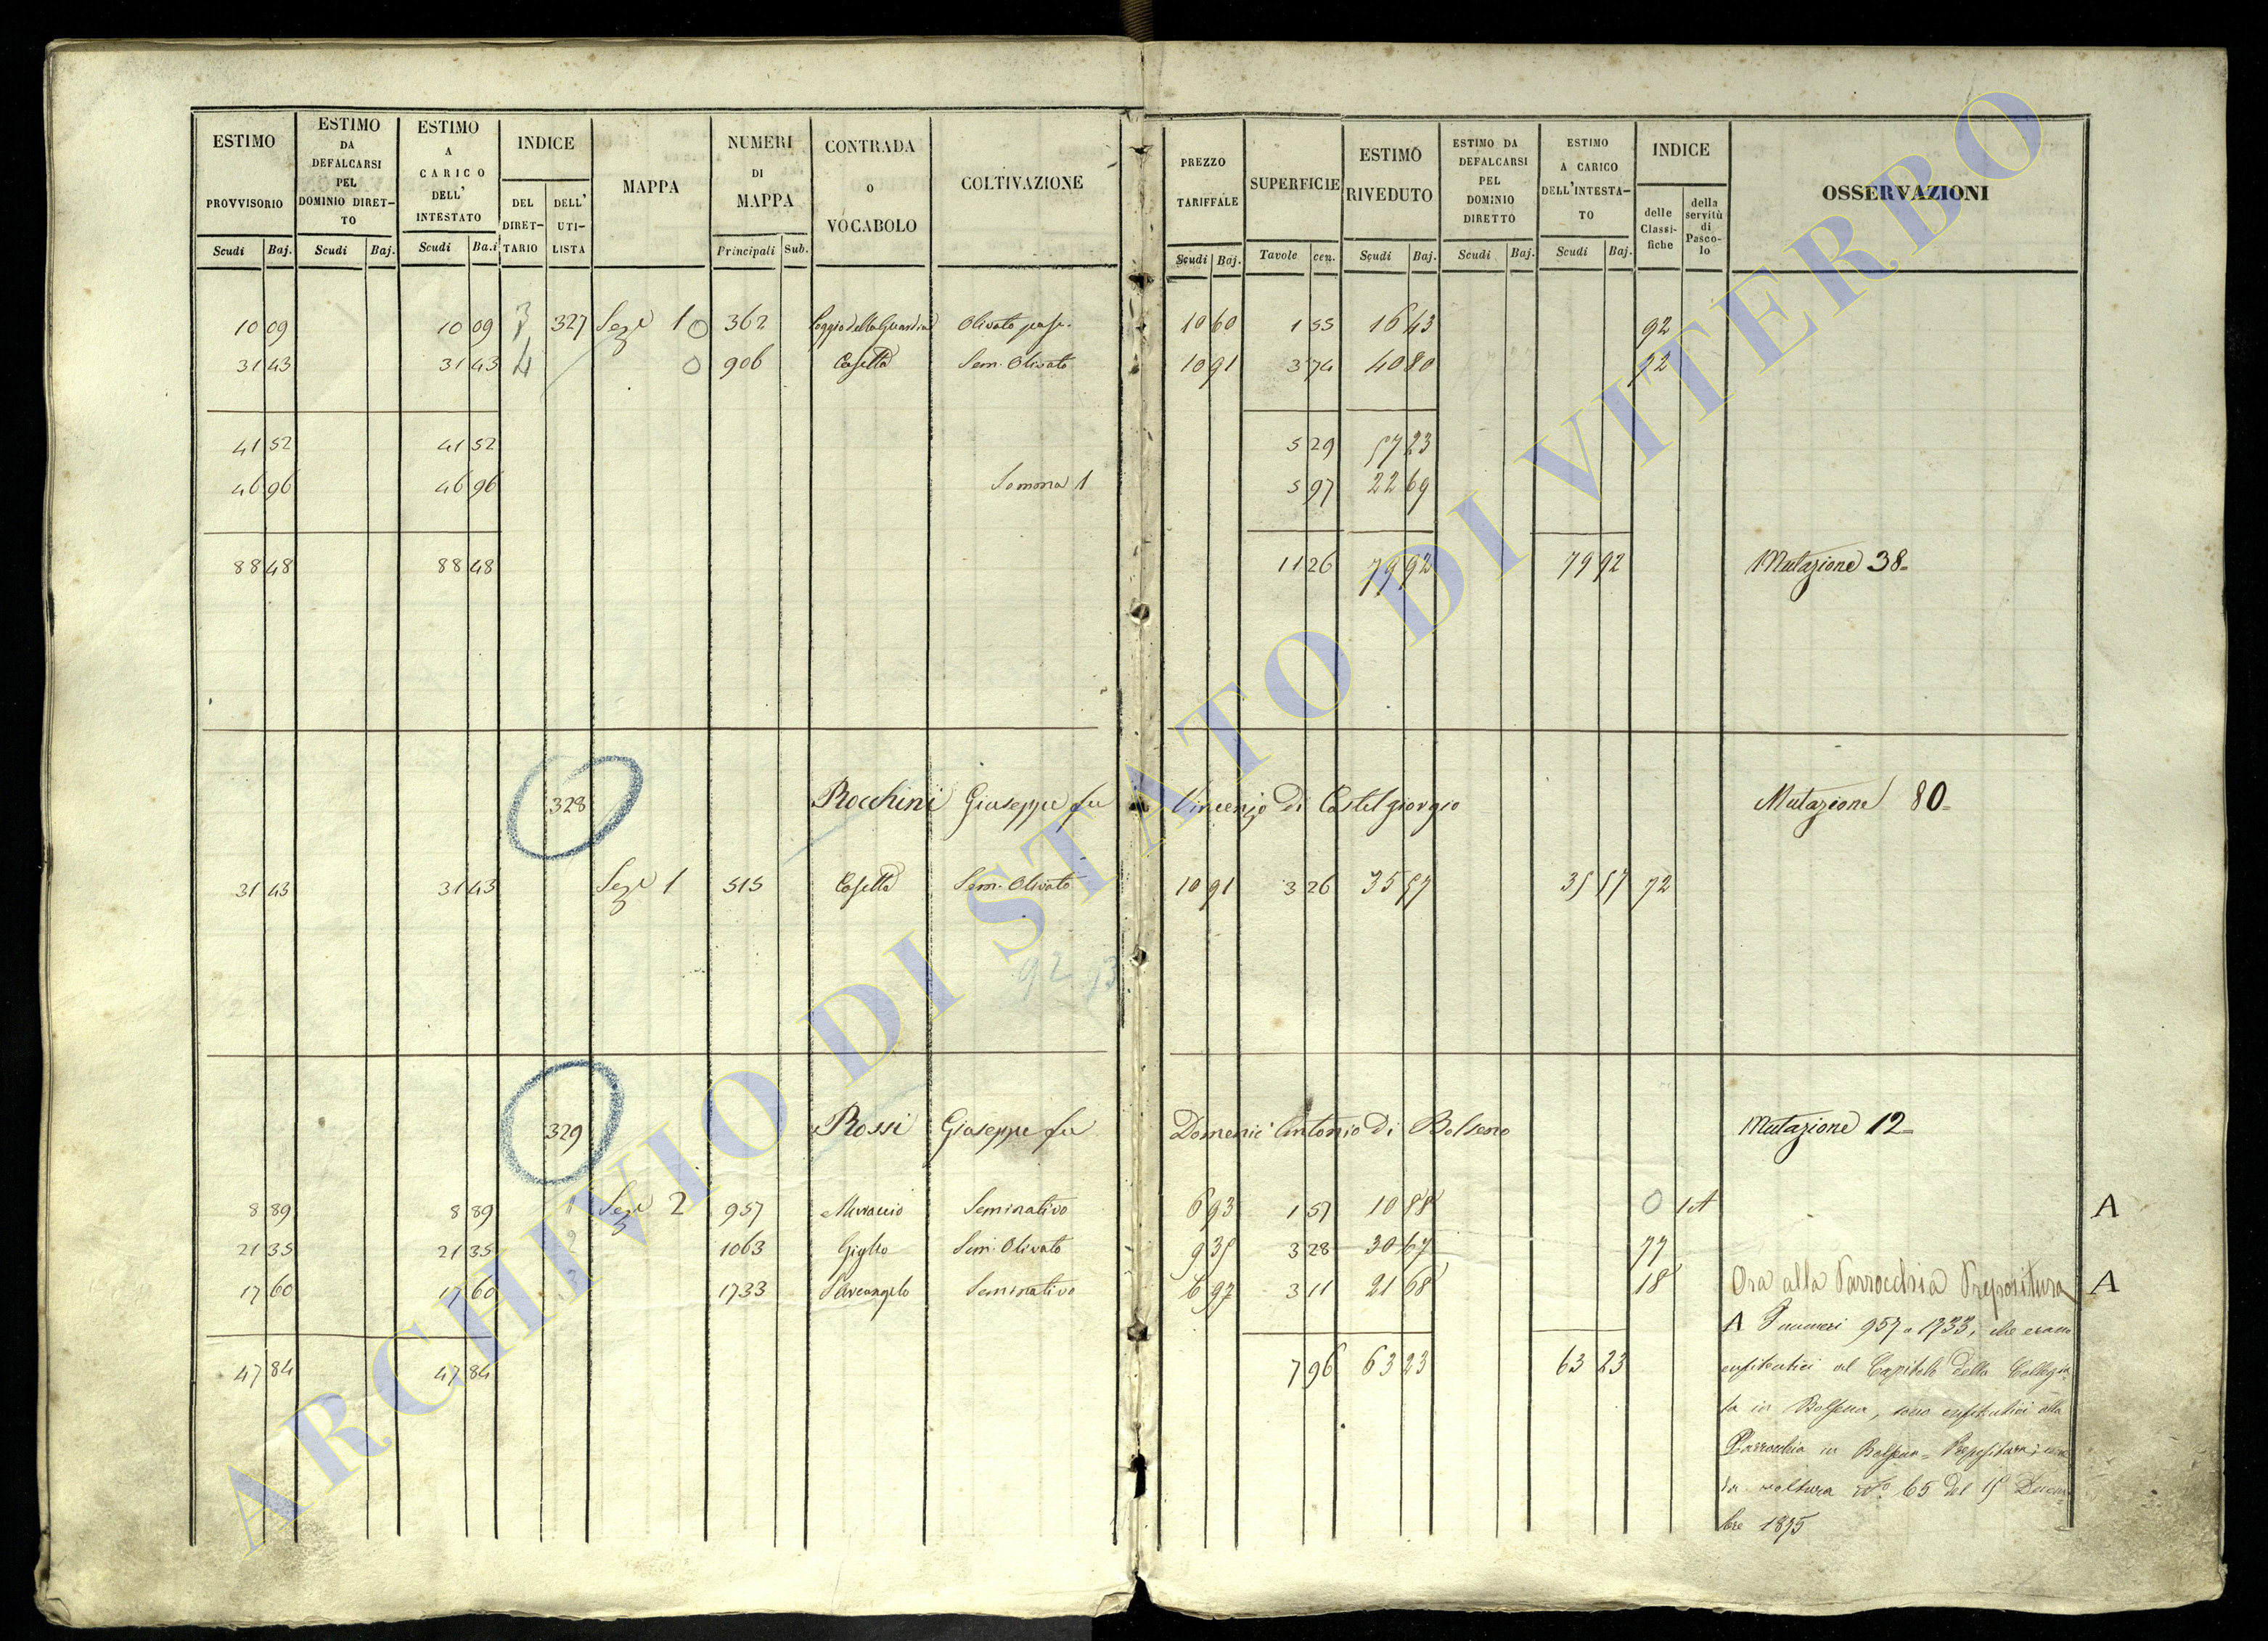 ESTIMO PROVVISORIO Scudi Baj.
ESTIMO DA DEFALCARSI PEL DOMINIO DIRET- TO Scudi Baj.
ESTIMO A CARICO DELL' INTESTATO Scudi Ba.i
INDICE DEL DIRET- TARIO DELL' UTI- LISTA
MAPPA
NUMERI DI MAPPA Principali Sub.
CONTRADA O VOCABOLO
COLTIVAZIONE
PREZZO TARIFFALE Scudi Baj.
SUPERFICIE Tavole cen.
ESTIMO RIVEDUTO Scudi Baj.
ESTIMO DA DEFALCARSI PEL DOMINIO DIRETTO Scudi Baj.
ESTIMO A CARICO DELL'INTESTA- TO Scudi Baj.
INDICE delle Classi- fiche della servitù di Pasco- lo
OSSERVAZIONI
10 09 10 09 3 327 Seze 1 0 362 Poggio della Guardia Olivato pasc. 10 60 1 55 16 43 92
31 43 31 43 4 0 906 Casetta Sem. Olivato 10 91 3 74 40 80 72
41 52 41 52 5 29 57 23
46 96 46 96 Somma 1 5 97 22 69
88 48 88 48 11 26 79 92 79 92 Mutazione 38
328 Rocchini Giuseppe fu Vincenzo di Castelgiorgio Mutazione 80
31 43 31 43 Seze 1 515 Casetta Sem. Olivato 10 91 3 26 35 57 35 57 72
92
329 Rossi Giuseppe fu Domenic' Antonio di Bolseno Mutazione 12
8 89 8 89 1 Seze 2 957 Muraccio Seminativo 6 93 1 57 10 88 0 1A A
21 35 21 35 2 1063 Giglio Sem. Olivato 9 35 3 28 30 67 77
17 60 17 60 3 1733 S Arcangelo Seminativo 6 97 3 11 21 68 18 Ora alla Parrocchia Prepositura A
A I numeri 957 e 1733, che erano
47 84 47 84 7 96 63 23 63 23 enfiteutici al Capitolo della Collegia
ta in Bolsena, sono enfiteutici alla
Parrocchia in Bolsena = Prepositura;
voltura No. 65 del 15 Decem-
bre 1875
ARCHIVIO DI STATO DI VITERBO